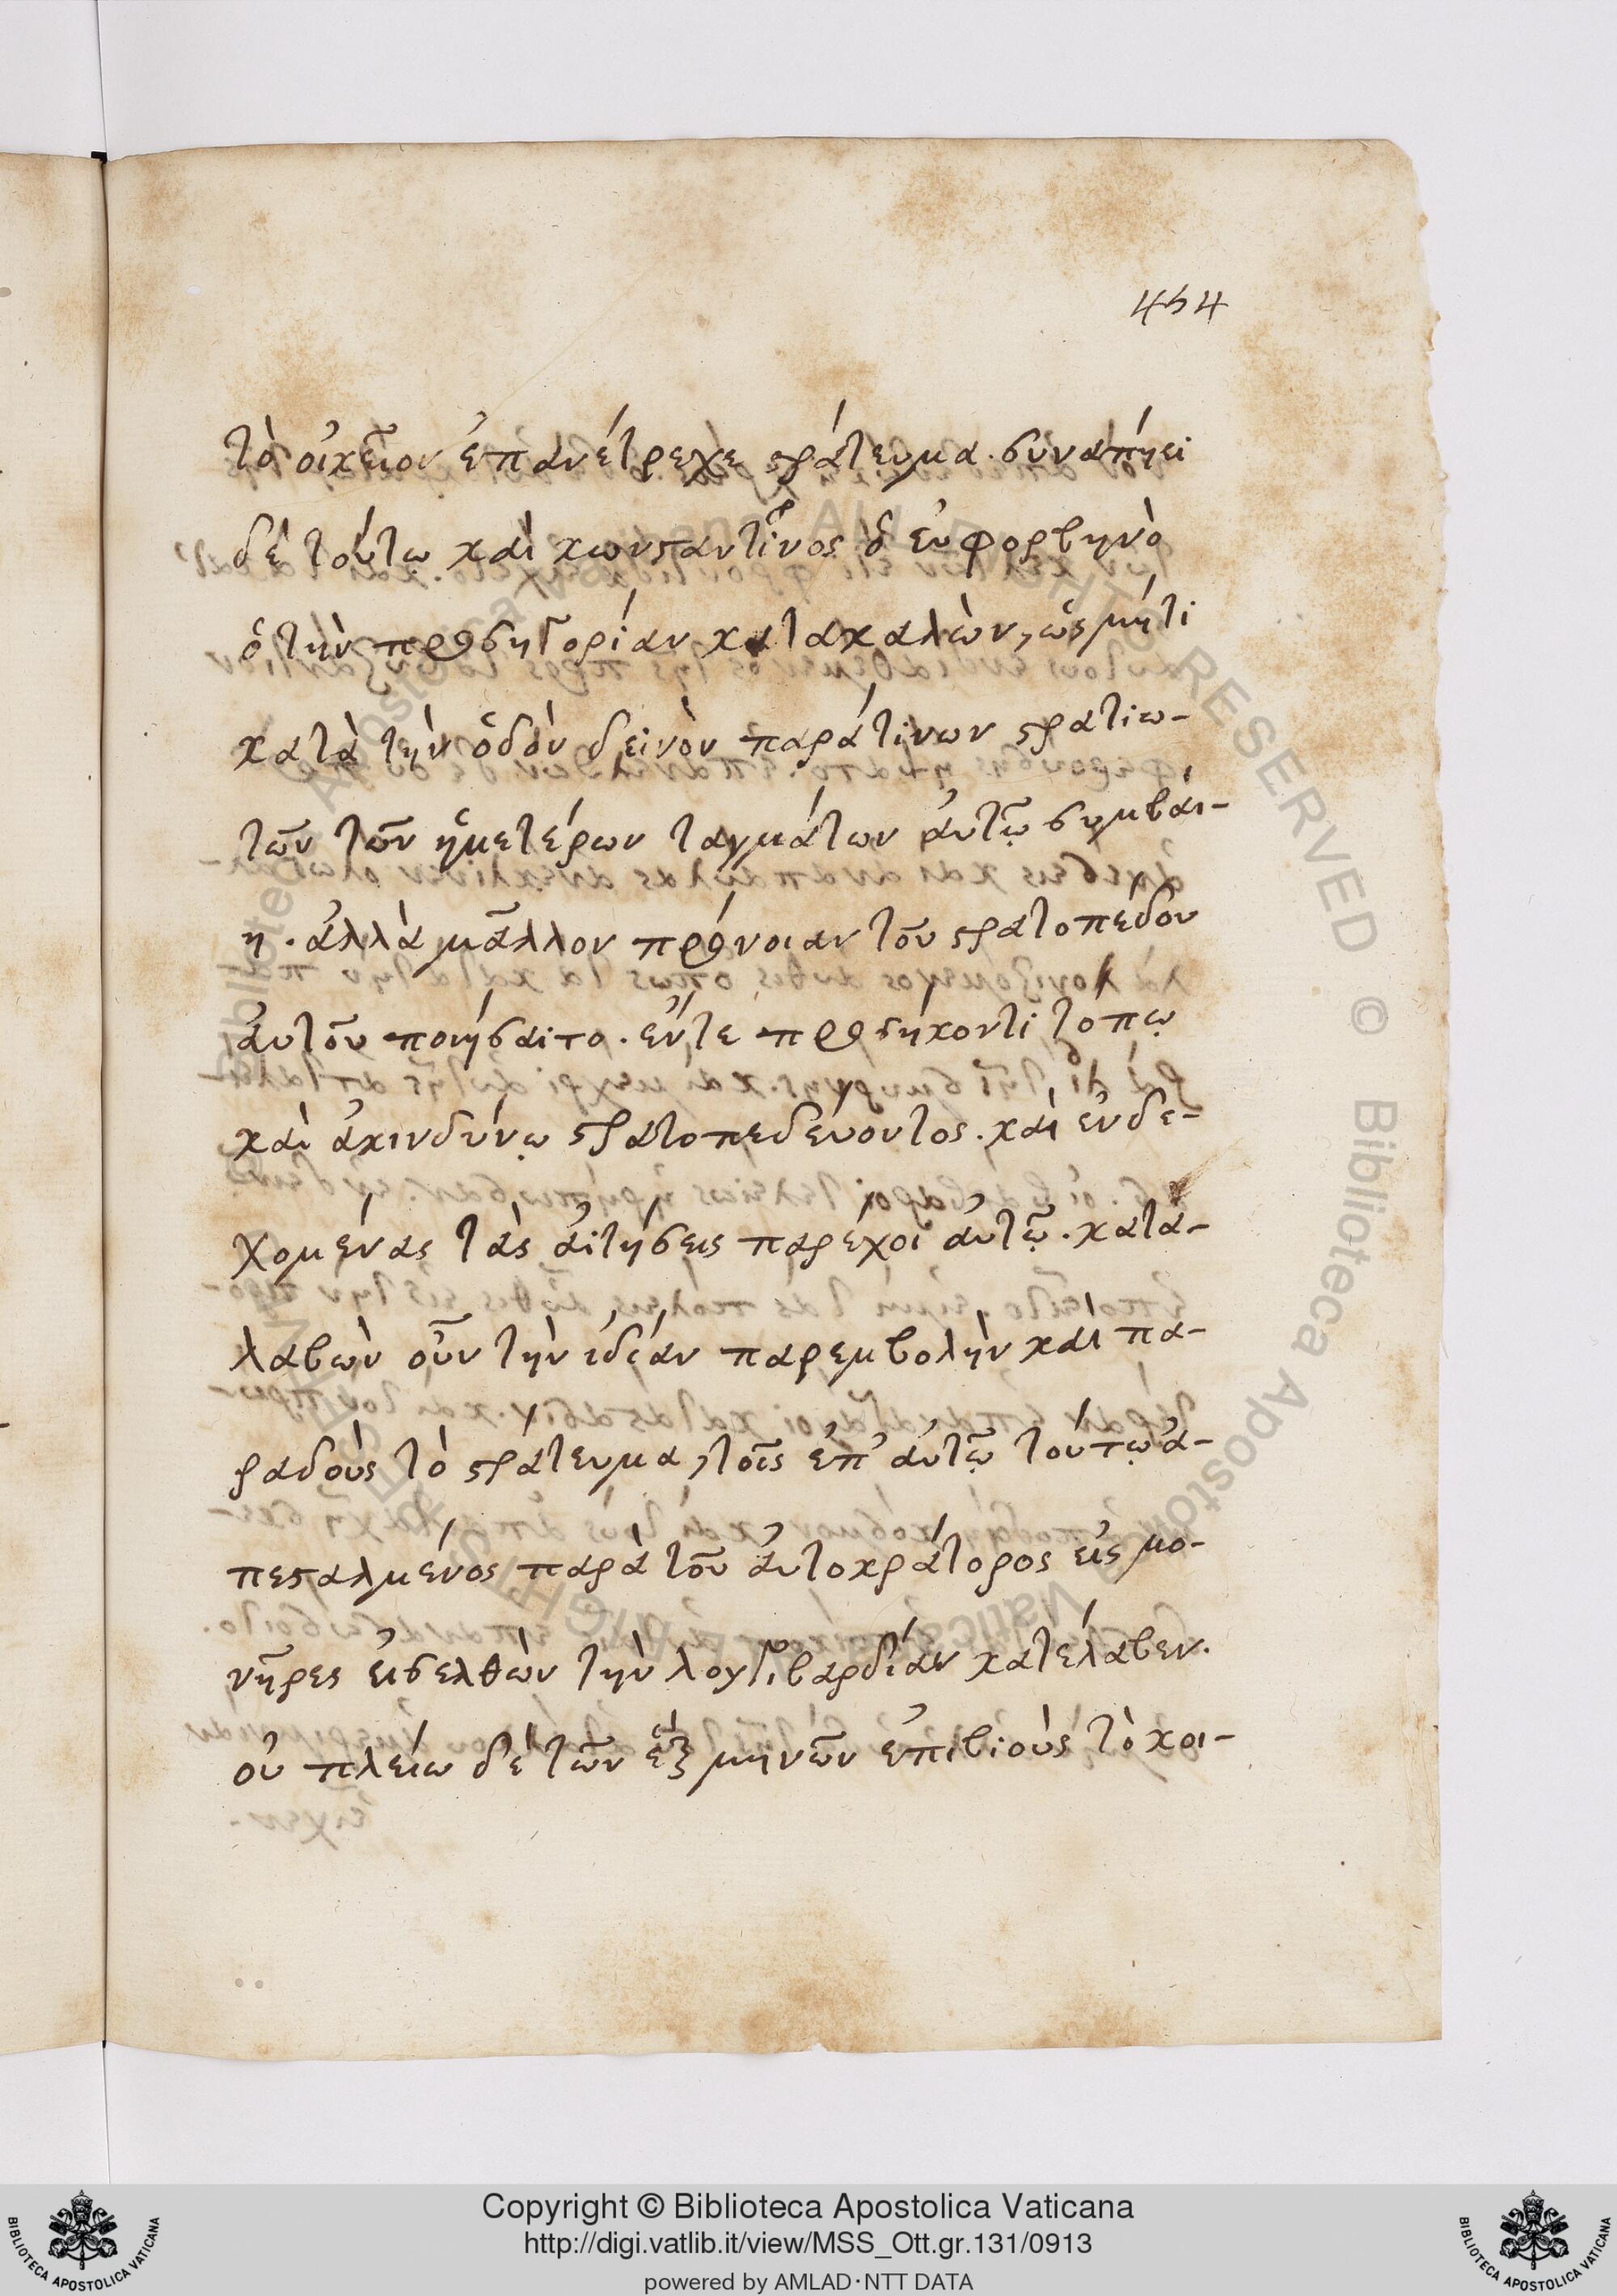 454
τὸ οἰκεῖον ἐπανέτρεχε στράτευμα. συναπήει
δὲ τούτω καὶ κωνσταντῖνος ὁ εὐφορβηνὸ
ὁ τὴν προσηγορίαν κατακαλὼν, ὡς μήτι
κατὰ τὴν ὁδὸν δεινὸν παράτινων στρατιω-
τῶν τῶν ἡμετέρων ταγμάτων ἀυτῷ συμβάι-
η. ἀλλὰ μᾶλλον πρόνοιαν τοῦ στρατοπέδου
ἀυτοῦ ποιήσαιτο. ἔντε προσήκοντι τόπῳ
καὶ ἀκινδύνῳ στρατοπεδέυοντος. καὶ ἐνδε-
χομένας τὰς ἀιτήσεις παρέχοι ἀυτῷ. κατα-
λαβὼν οὖν τὴν ἰδίαν παρεμβολὴν καὶ πα-
ραδοὺς τὸ στράτευμα, τοῖς ἐπ' ἀυτῷ τούτῳ ἀ-
πεσταλμένος παρὰ τοῦ ἀυτοκράτορος εἰς μο-
νῆρες εἰσελθὼν τὴν λογγιβαρδίαν κατέλαβεν.
οὐ πλείω δὲ τῶν ἓξ μηνῶν ἐπιβιοὺς τὸ χοι-
Copyright © Biblioteca Apostolica Vaticana
http://digi.vatlib.it/view/MSS_Ott.gr.131/0913
powered by AMLAD·NTT DATA
BIBLIOTECA APOSTOLICA VATICANA
BIBLIOTECA APOSTOLICA VATICANA